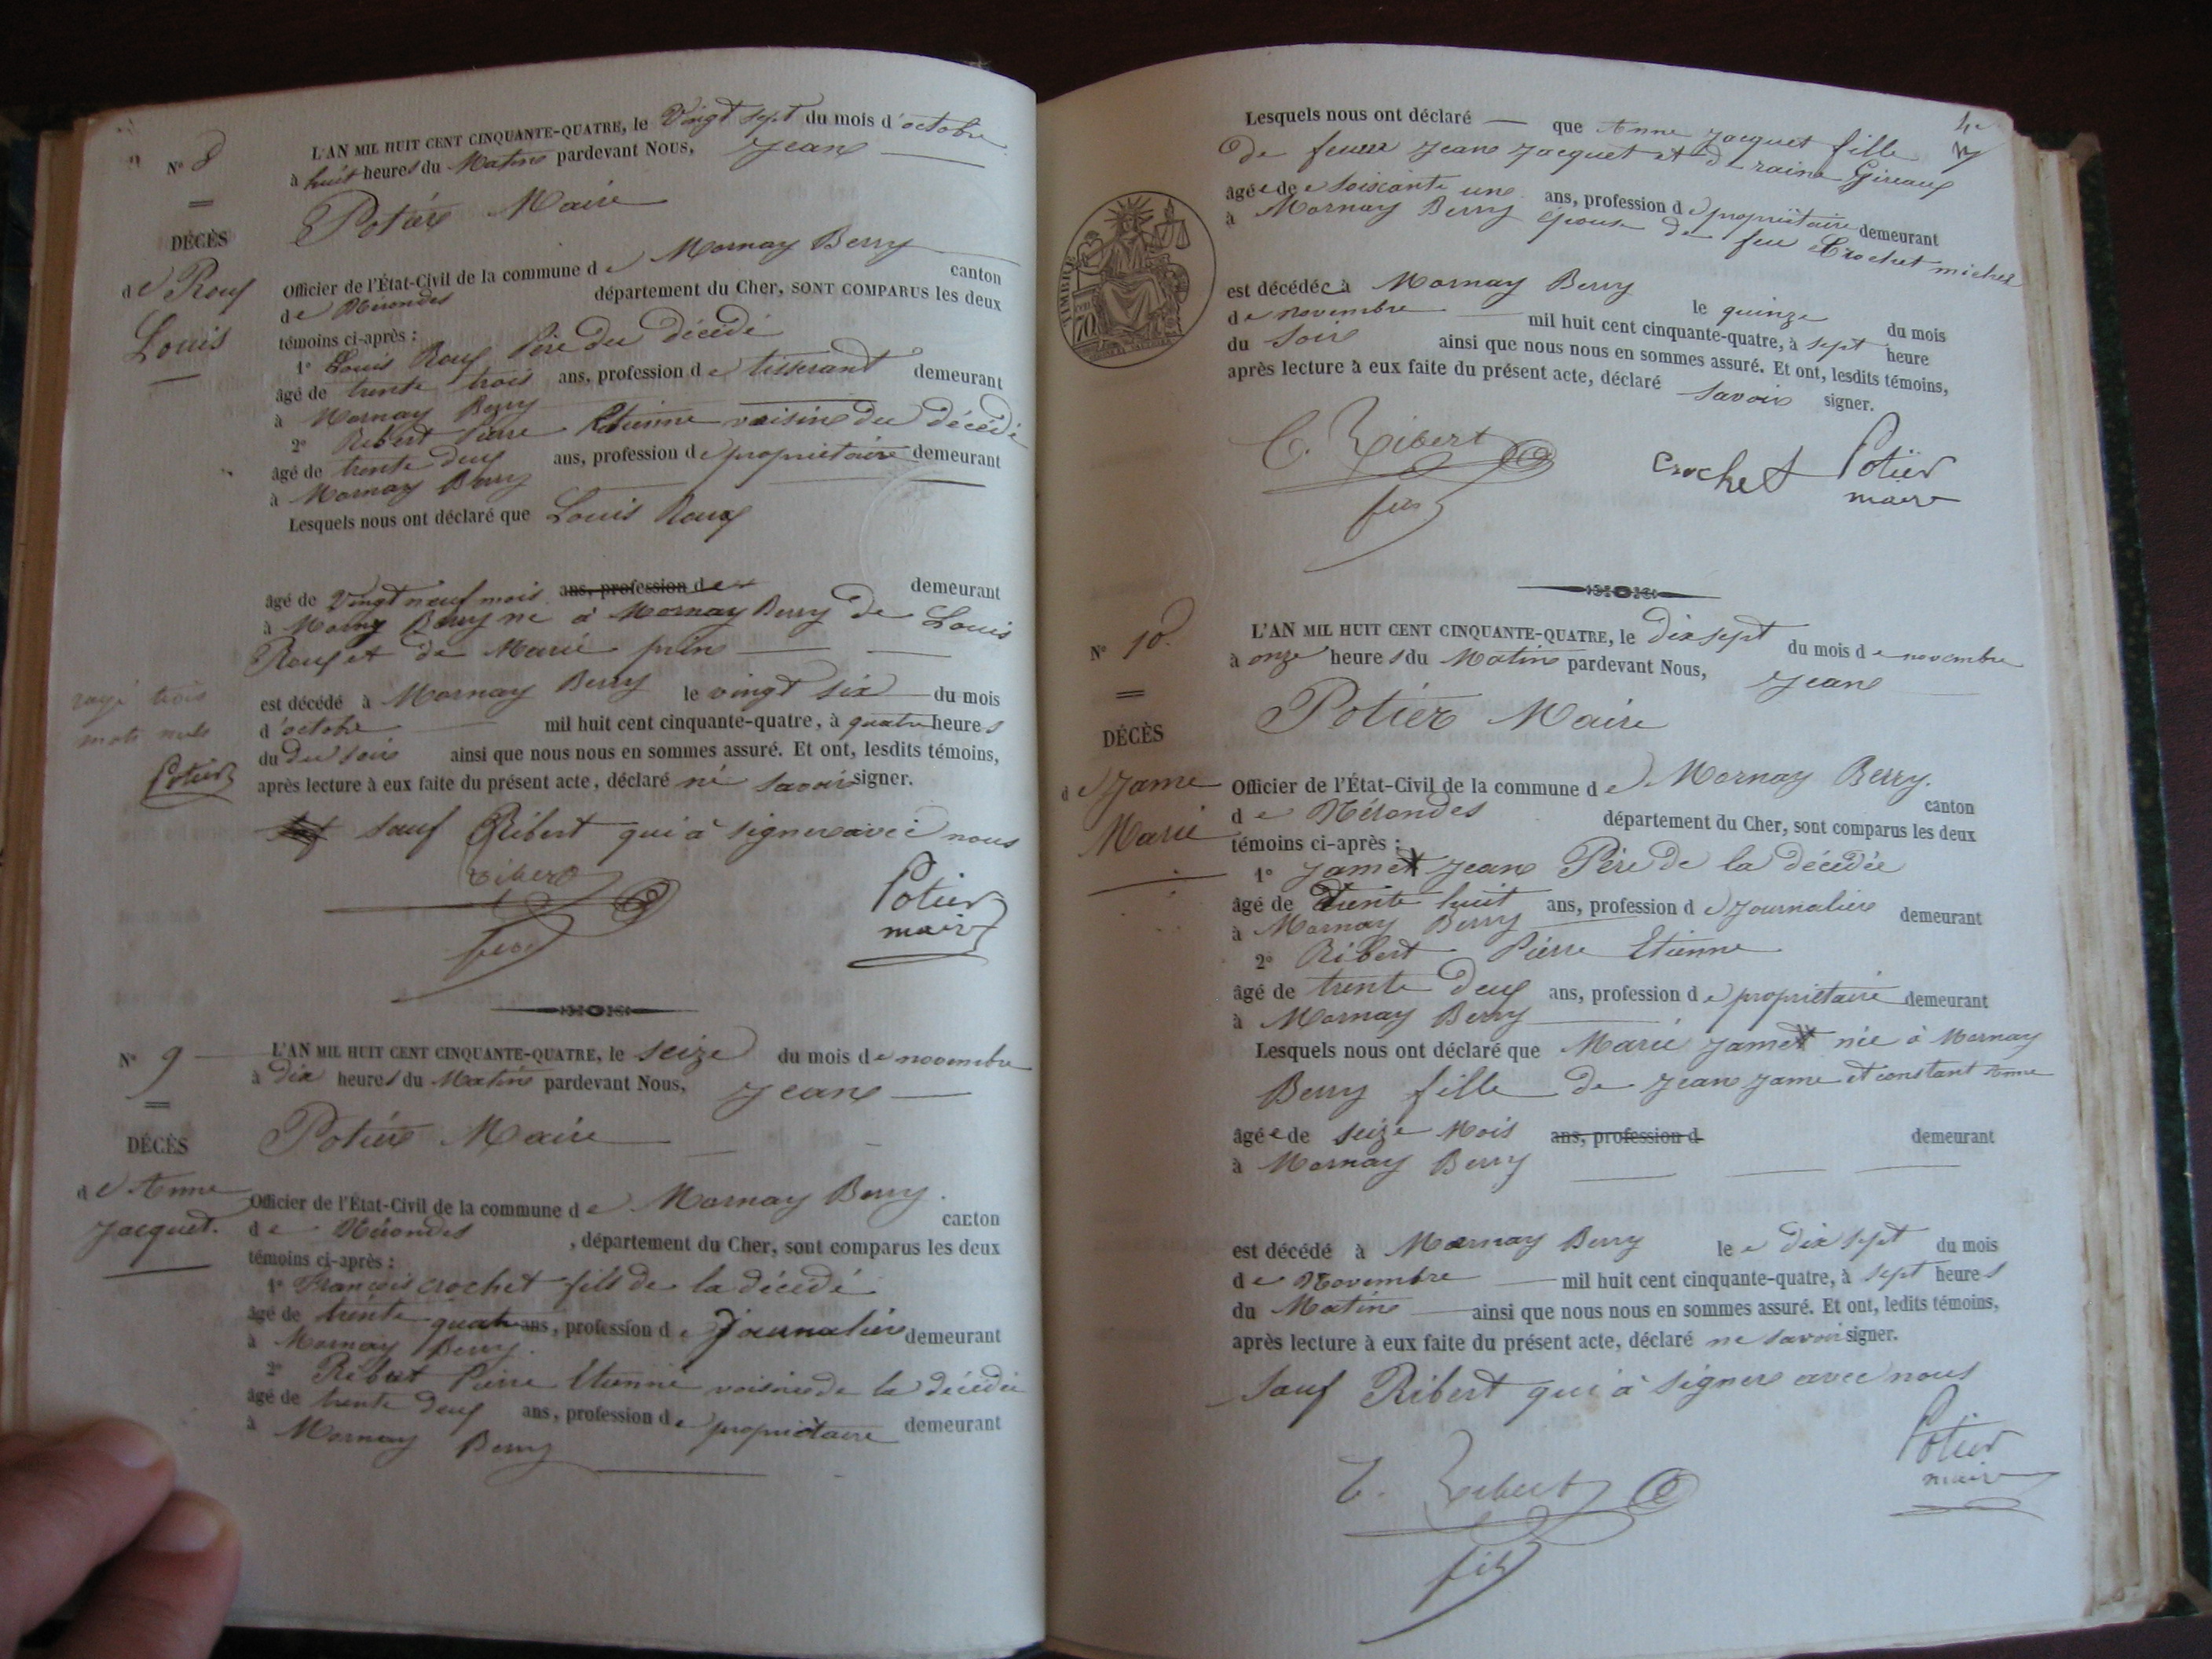 N° 8
DÉCÈS
de Rouf
Louis
L'AN MIL HUIT CENT CINQUANTE-QUATRE, le Vingt sept du mois d'octobre
à huit heures du Matin pardevant Nous, Jean
Potier Maire
Officier de l'État-Civil de la commune de Mornay Berry
canton
de Nérondes département du Cher, SONT COMPARUS les deux
témoins ci-après :
1° Louis Rouf Père du décédé
âgé de trente trois ans, profession de tisserant demeurant
à Mornay Berry
2° Ribert Pierre Etienne voisin du décédé
âgé de trente deux ans, profession de propriétaire demeurant
à Mornay Berry
Lesquels nous ont déclaré que Louis Roux
âgé de Vingt neuf mois ans, profession de demeurant
à Mornay Berry né à Mornay Berry de Louis
Rouf et de Marie
rayé trois
mots nuls
Potier
est décédé à Mornay Berry le vingt six du mois
d'octobre mil huit cent cinquante-quatre, à quatre heures
du du soir ainsi que nous nous en sommes assuré. Et ont, lesdits témoins,
après lecture à eux faite du présent acte, déclaré ne savoir signer.
sauf Ribert qui à signer avec nous
Ribert
fils
Potier
maire
N° 9
DÉCÈS
de Anne
Jacquet.
L'AN MIL HUIT CENT CINQUANTE-QUATRE, le seize du mois de novembre
à dix heures du Matin pardevant Nous, Jean
Potier Maire
Officier de l'État-Civil de la commune de Mornay Berry.
canton
de Nérondes, département du Cher, sont comparus les deux
témoins ci-après :
1° François crochet fils de la décédé
âgé de trente quatre ans, profession de Journalier demeurant
à Mornay Berry.
2° Ribert Pierre Etienne voisin de la décédée
âgé de trente deux ans, profession de propriétaire demeurant
à Mornay Berry
Lesquels nous ont déclaré que Anne Jacquet fille
de Jean Jacquet et de raine Gireaux
âgée de soixante une ans, profession de propriétaire demeurant
à Mornay Berry épouse de feu Crochet michel
TIMBRE
70
est décédée à Mornay Berry le quinze du mois
de novembre mil huit cent cinquante-quatre, à sept heure
du soir ainsi que nous nous en sommes assuré. Et ont, lesdits témoins,
après lecture à eux faite du présent acte, déclaré savoir signer.
Ribert
fils
crochet
Potier
maire
N° 10
DÉCÈS
de Jame
Marie
L'AN MIL HUIT CENT CINQUANTE-QUATRE, le Dix sept du mois de novembre
à onze heures du Matin pardevant Nous, Jean
Potier Maire
Officier de l'État-Civil de la commune de Mornay Berry.
canton
de Nérondes département du Cher, sont comparus les deux
témoins ci-après :
1° Jame Jean Père de la décédée
âgé de trente huit ans, profession de Journalier demeurant
à Mornay Berry
2° Ribert Pierre Etienne
âgé de trente deux ans, profession de propriétaire demeurant
à Mornay Berry
Lesquels nous ont déclaré que Marie Jame née à Mornay
Berry fille de Jean Jame et constant Anne
âgée de seize Mois ans, profession d demeurant
à Mornay Berry
est décédé à Mornay Berry le dix sept du mois
de Novembre mil huit cent cinquante-quatre, à sept heures
du Matin ainsi que nous nous en sommes assuré. Et ont, ledits témoins,
après lecture à eux faite du présent acte, déclaré ne savoir signer.
Sauf Ribert qui à signer avec nous
Ribert
fils
Potier
maire